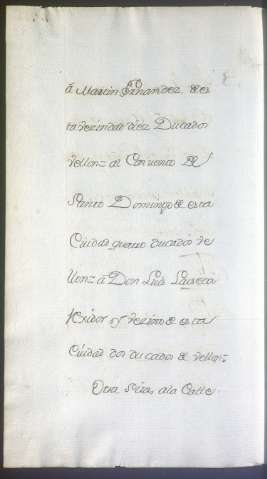 á Martin Frnandez, de es
ta vezindad diez Ducados
vellon= al Conuento de
Santo Domingo de esta
Ciudad quatro ducados ve
llon= á Don Luis
Rexidor y vezino de esta
Ciudad dos ducados de vellon=
Otra Pieza, a la Calle